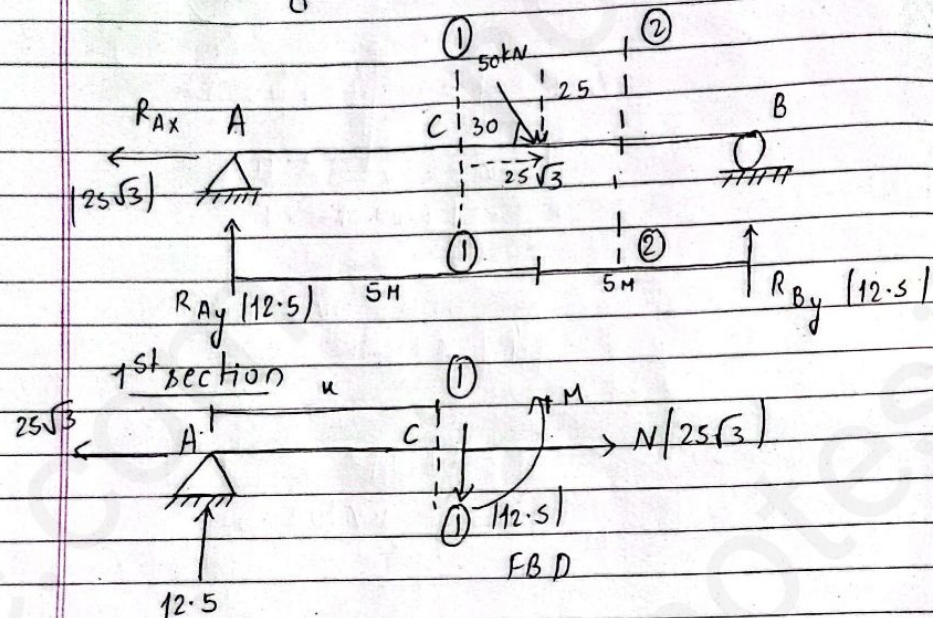 ① ②
50kN 25
R_AX A C 30 B
(25√3) 25√3
① ②
5M 5M
R_Ay (12.5) R_By (12.5)
1st section x ①
25√3 A C M N(25√3)
① (12.5)
FBD
12.5